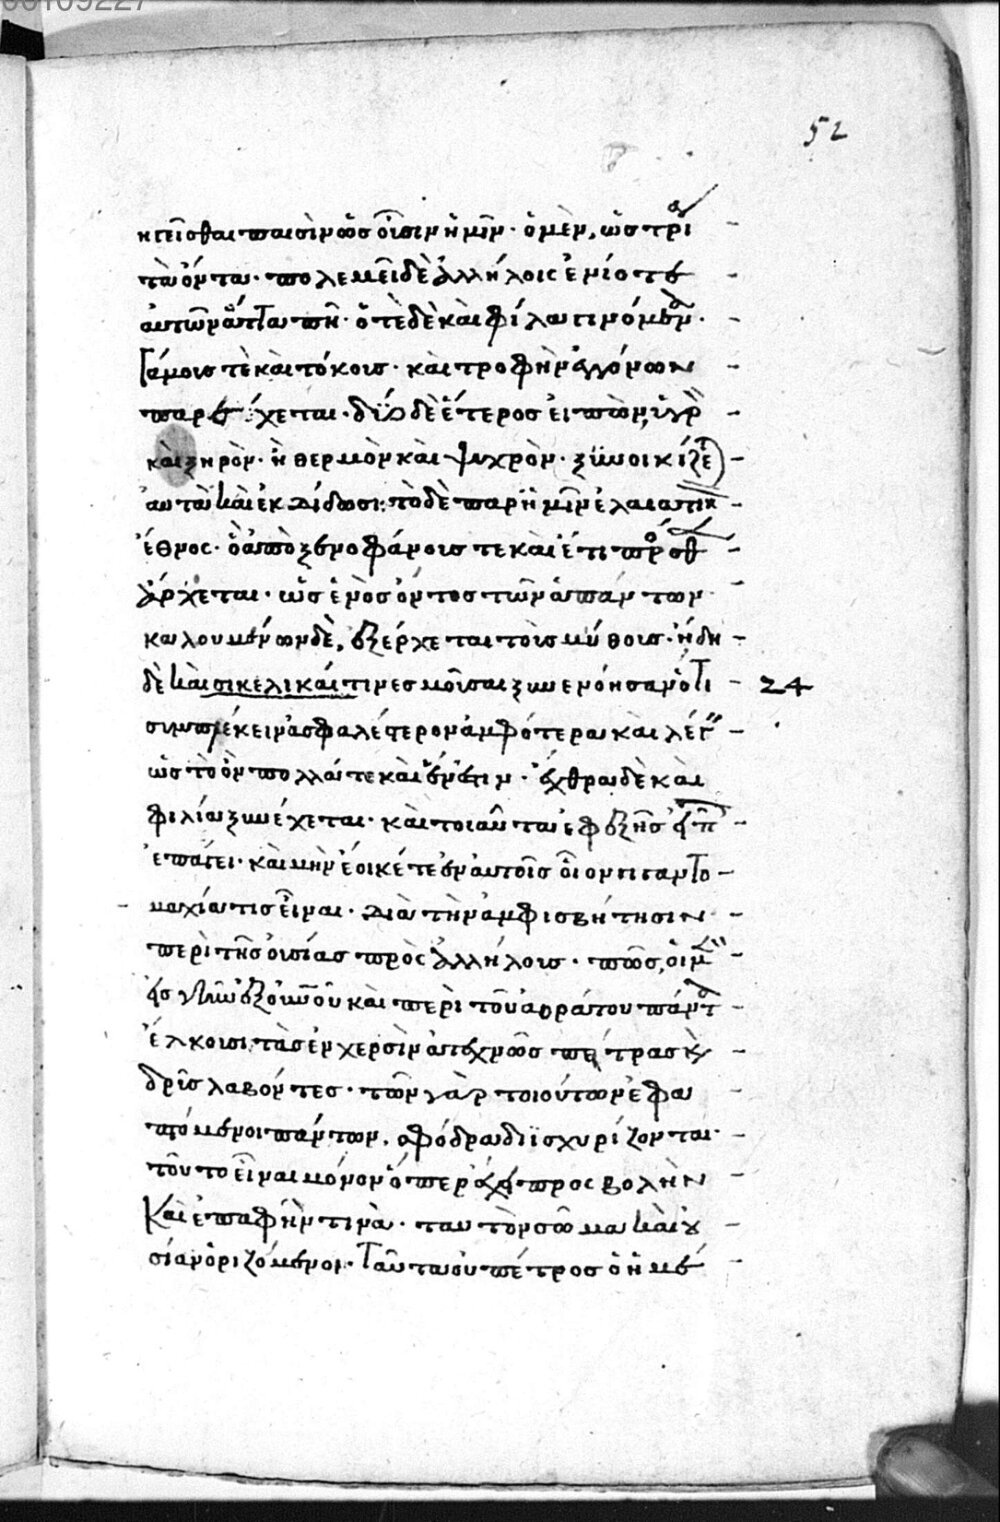 52
ηγεῖσθαι παισὶν ὡς οὖσιν ἡμῖν · ὁ μὲν, ὡς τρία
τὰ ὄντα · πολεμεῖ δὲ ἀλλήλοις ἐνίοτε
αὐτῶν ἄττα πῆ · ὁτὲ δὲ καὶ φίλα γινόμενα ·
Γάμους τὲ καὶ τόκους · καὶ τροφὴν ἐγγόνων
παρέχεται · δύο δὲ ἕτερος εἰπὼν, ὑγρὸν
καὶ ξηρὸν · ἢ θερμὸν καὶ ψυχρὸν · ξυνοικίζει
αὐτὰ καὶ ἐκδίδωσι · τὸ δὲ παρ' ἡμῖν ἐλεατικὸν
ἔθνος · ὃ ἀπὸ ξενοφάνους τε καὶ ἔτι πρόσθεν
ἀρχεται · ὡς ἑνὸς ὄντος τῶν ἁπάντων
καλουμένων δὲ, διεξέρχεται τοῖς μύθοις · ἤδη
δὲ καὶ σικελικαί τινες μοῦσαι ξυνενόησαν ὅτι 24
συμπλέκειν ἀσφαλέστερον ἀμφότερα καὶ λέγειν
ὡς τὸ ὂν πολλά τε καὶ ἕν ἐστιν · ἔχθρα δὲ καὶ
φιλία ξυνέχεται · καὶ τοιαῦτα ἐφεξῆς
ἐπάγει · καὶ μὴν ἔοικέ τε ἐν αὐτοῖς οἷον γιγαντο
μαχία τις εἶναι · διὰ τὴν ἀμφισβήτησιν
περὶ τῆς οὐσίας πρὸς ἀλλήλους · πῶς, οἱ μὲν
ἐς γῆν ἐξ οὐρανοῦ καὶ περὶ τοῦ ἀοράτου πάντα
ἕλκουσι, τὰς ἐν χερσὶν ἀτεχνῶς πέτρας καὶ
δρῦς λαβόντες · τῶν γὰρ τοιούτων ἐφα
πτόμενοι πάντων, σφόδρα διϊσχυρίζονται ·
τοῦτο εἶναι μόνον ὅπερ ἔχει προσβολὴν
Καὶ ἐπαφήν τινα · ταυτὸν σῶμα καὶ οὐ
σίαν ὁριζόμενοι · Ταῦτα οὐ πέτρος ὁ ἡμέ